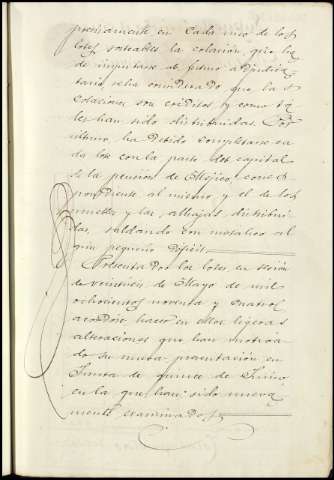 precisamente en cada uno de los
lotes sorteables la colación, que ha
de imputarse al futuro adjudica
tario se ha considerado que la s
colaciones son créditos y como ta
les han sido distribuidas. Por
último, ha debido completarse ca
da lote con la parte del capital
de la pensión de Méjico, corres
pondiente al mismo y el de los
muebles y las alhajas distribui
das, saldando con metalico al
gún pequeño déficit.
Presentados los lotes en sesión
de veintiseis de Mayo de mil
ochocientos noventa y cuatro,
acordóse hacer en ellos ligeras
alteraciones que han motiva
do su nueva presentación en
Junta de quince de Junio
en la que han sido nueva
mente examinados.